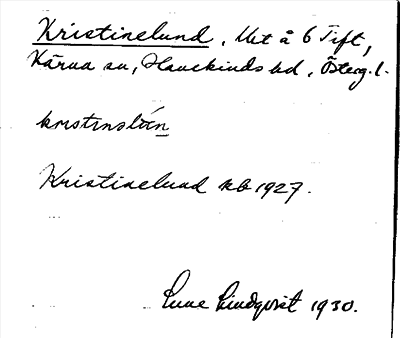 Kristinelund, Ut å 6 Tift,
Kärna sn, Hanekinds hd, Österg. l.
krɩstɩnəlɯ́n
Kristinelund kb 1927.
Sune Lindqvist 1930.